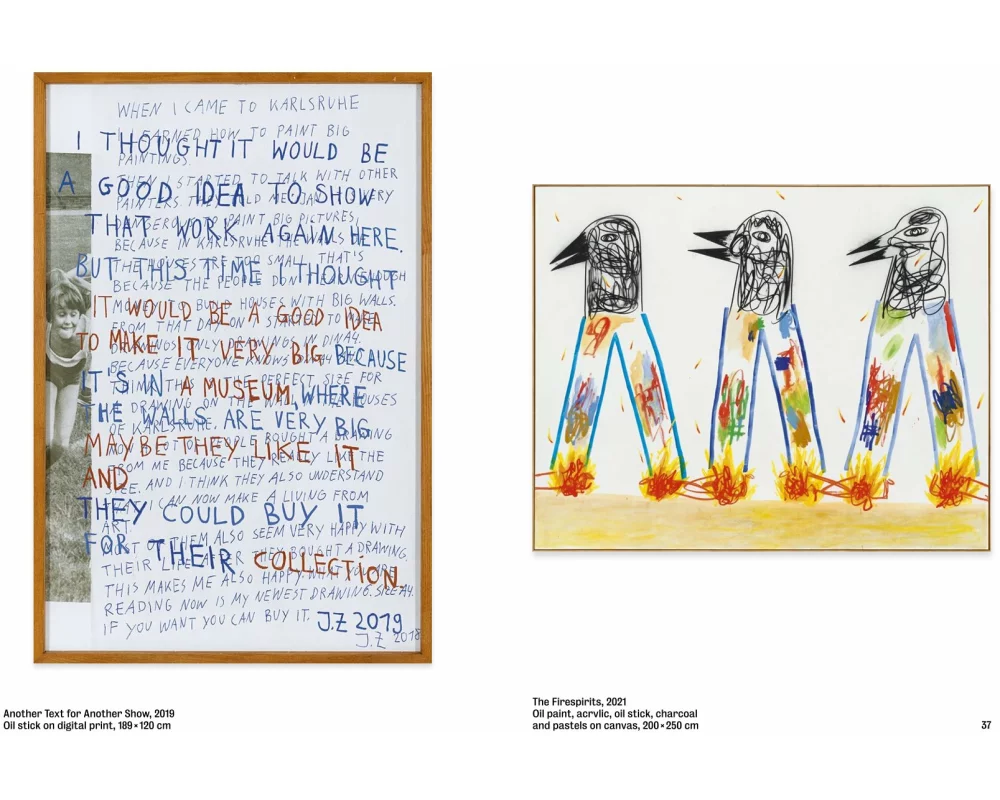 WHEN I CAME TO KARLSRUHE
I LEARNED HOW TO PAINT BIG
PAINTINGS.
THEN I STARTED TO TALK WITH OTHER
PAINTERS THEY TOLD ME VERY
DANGEROUS TO PAINT BIG PICTURES,
BECAUSE IN KARLSRUHE THE WALLS
THE HOUSES ARE TOO SMALL. THAT'S
BECAUSE THE PEOPLE DON'T ENOUGH
MONEY TO BUY HOUSES WITH BIG WALLS.
FROM THAT DAY ON I STARTED TO MAKE
ONLY DRAWINGS DINA4.
BECAUSE EVERYONE KNOWS
THINK THE PERFECT SIZE FOR
A DRAWING ON THE HOUSES
OF KARLSRUHE.
PEOPLE BOUGHT A DRAWING
FROM ME BECAUSE THEY REALLY LIKE THE
SIZE. AND I THINK THEY ALSO UNDERSTAND
I CAN NOW MAKE A LIVING FROM
ART.
MOST OF THEM ALSO SEEM VERY HAPPY WITH
THEIR LIFE AFTER THEY BOUGHT A DRAWING.
THIS MAKES ME ALSO HAPPY. WHAT YOU ARE
READING NOW IS MY NEWEST DRAWING. SIZE A4.
IF YOU WANT YOU CAN BUY IT.
J.Z 2018
I THOUGHT IT WOULD BE
A GOOD IDEA TO SHOW
THAT WORK AGAIN HERE.
BUT THIS TIME I THOUGHT
IT WOULD BE A GOOD IDEA
TO MAKE IT VERY BIG BECAUSE
IT'S IN A MUSEUM, WHERE
THE WALLS ARE VERY BIG
MAYBE THEY LIKE IT
AND
THEY COULD BUY IT
FOR THEIR COLLECTION.
J.Z 2019
Another Text for Another Show, 2019
Oil stick on digital print, 189 × 120 cm
The Firespirits, 2021
Oil paint, acrylic, oil stick, charcoal
and pastels on canvas, 200 × 250 cm
37